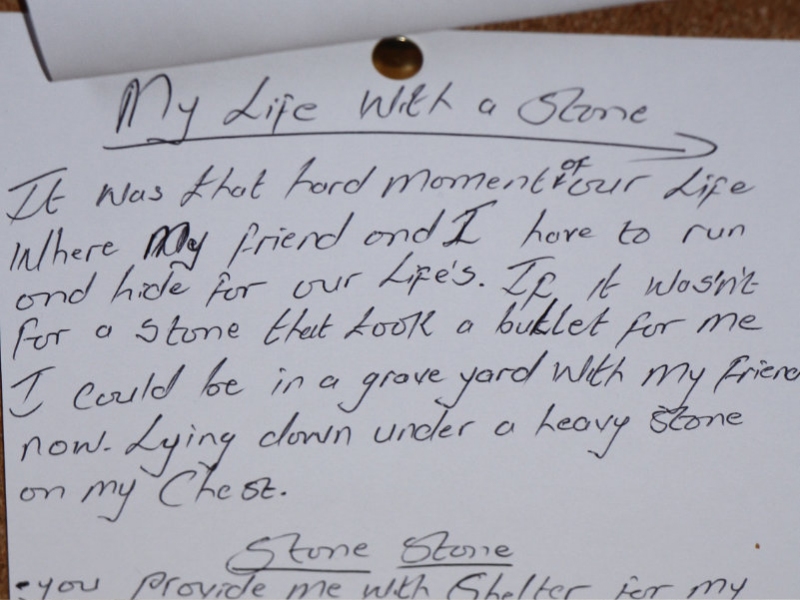 My Life With a Stone
It was that hard moment of our Life
Where My friend and I have to run
and hide for our Life's. If it wasn't
for a stone that took a bullet for me
I could be in a grave yard With my friend
now. Lying down under a heavy stone
on my Chest.
Stone Stone
- you provide me with Shelter for my